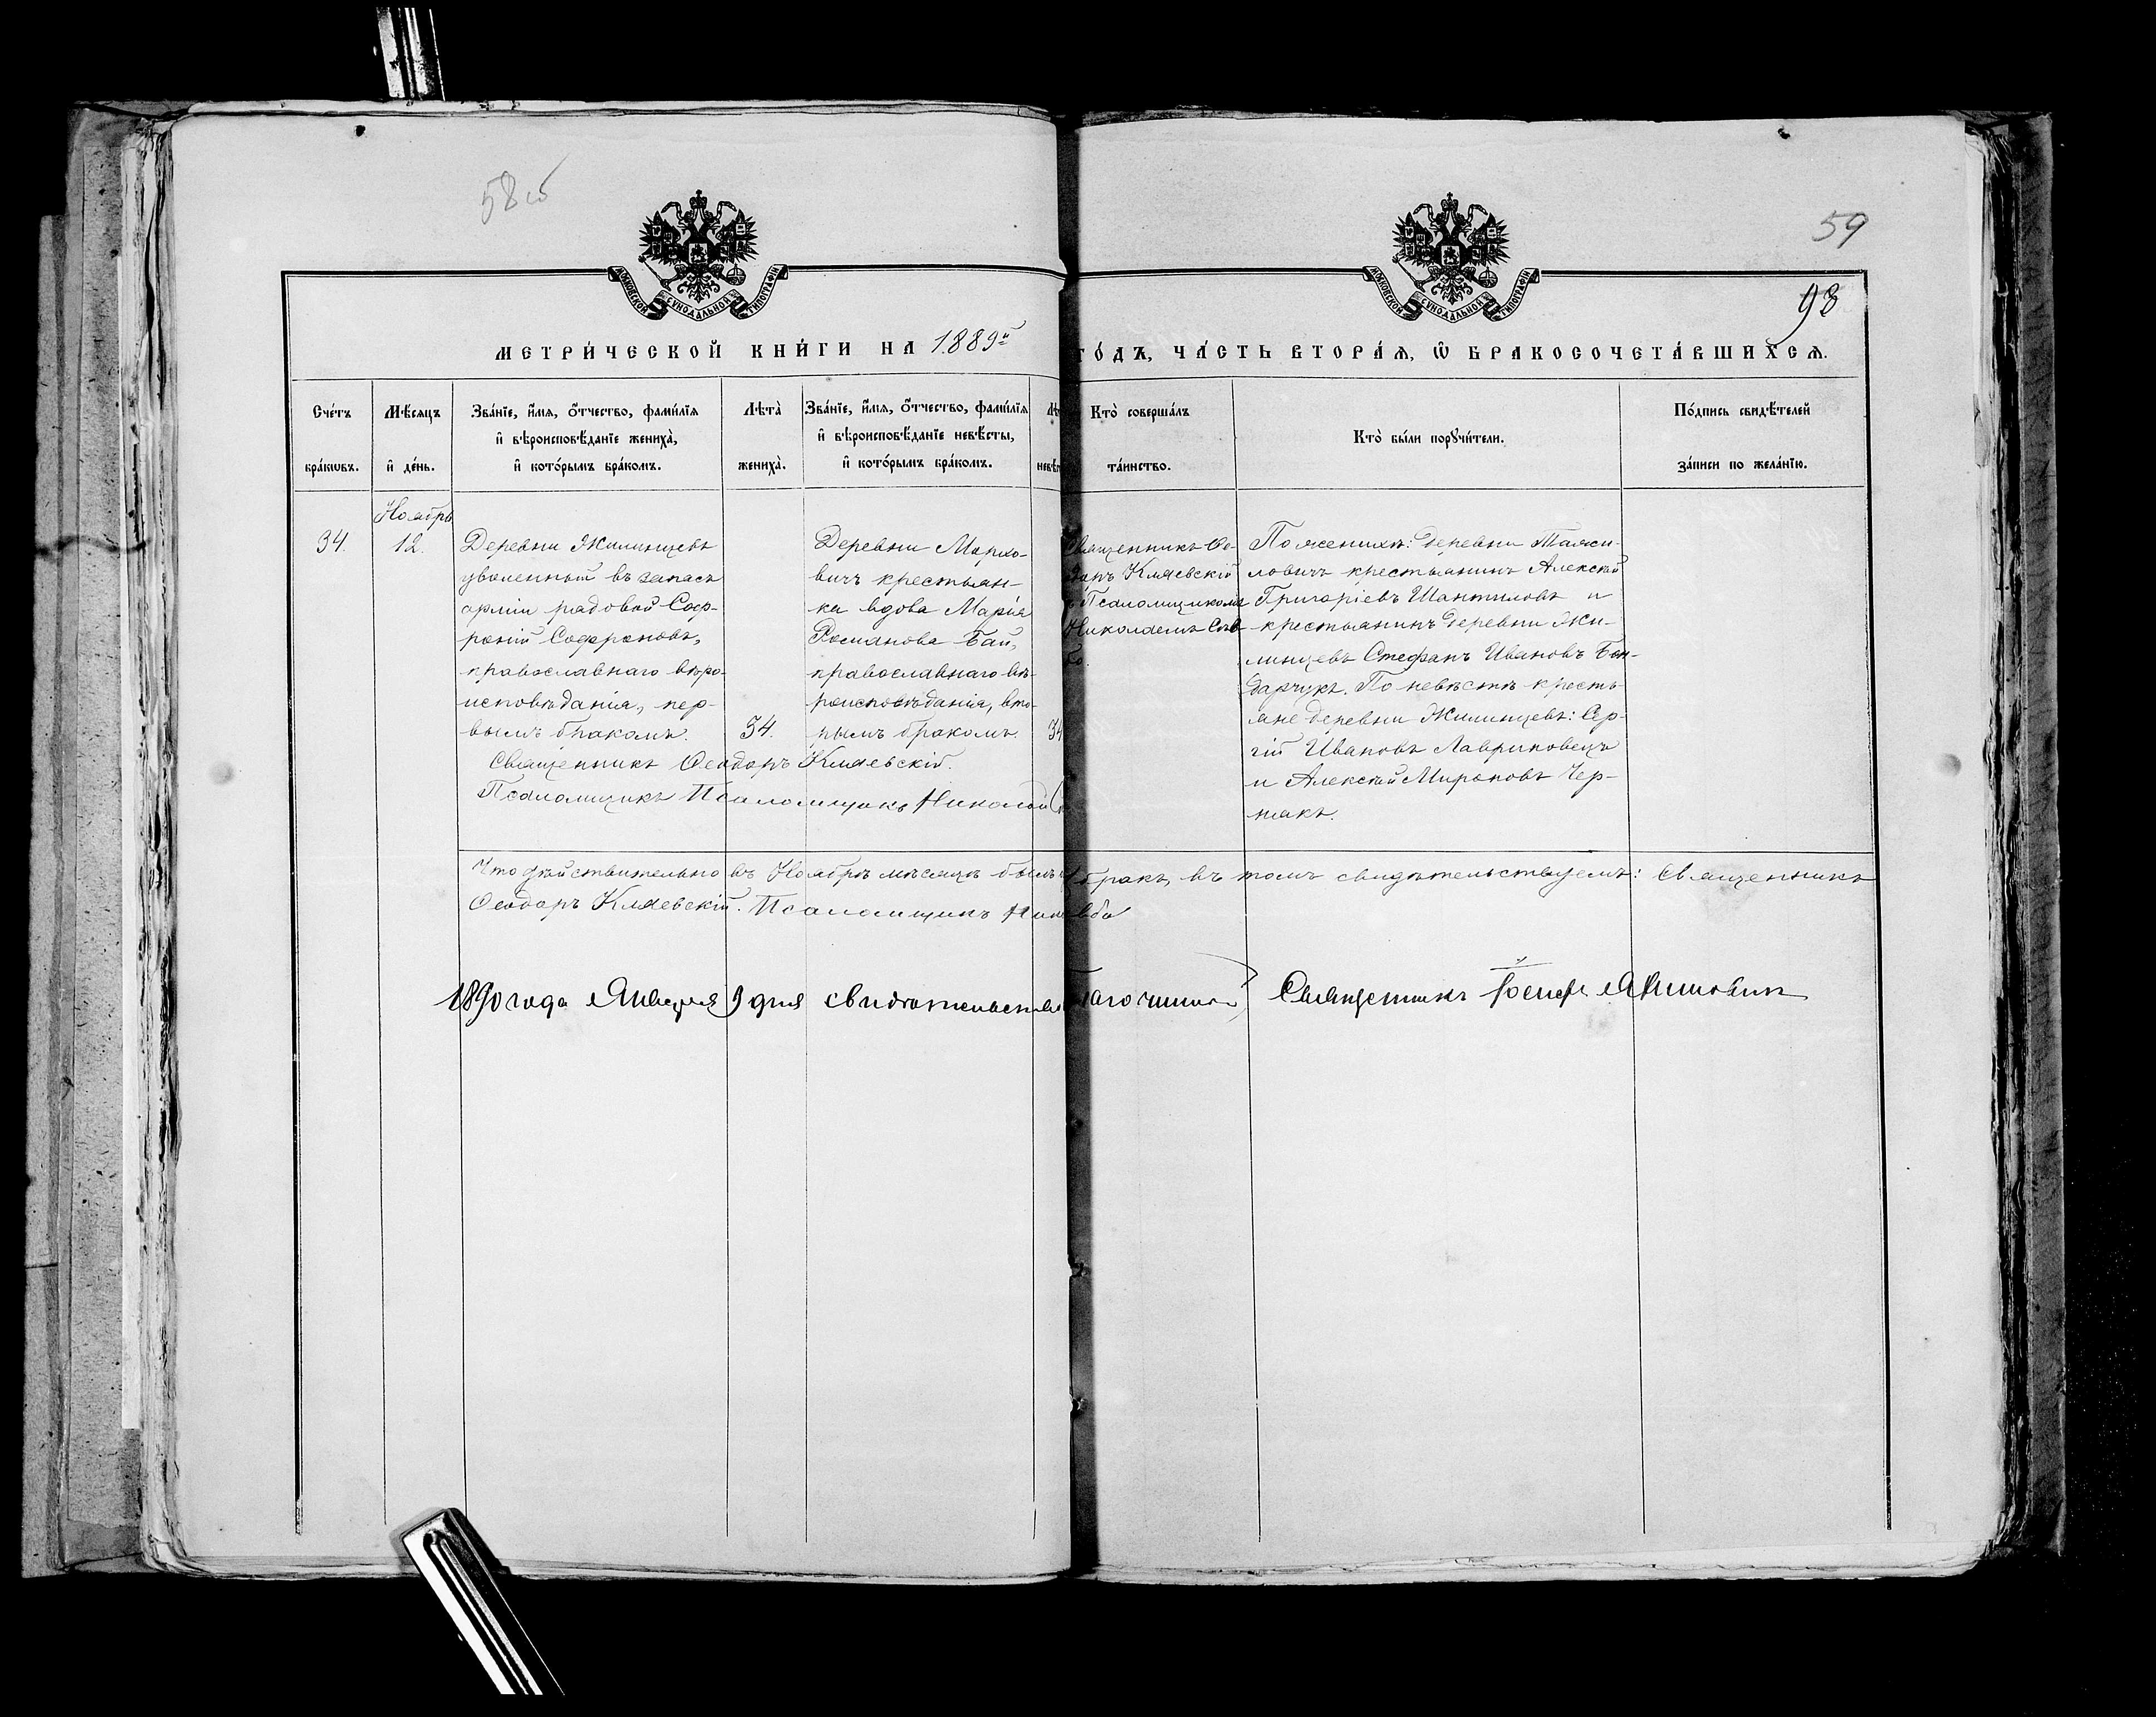 58об
59
98
МОСКОВСКОЙ СѴНОДАЛЬНОЙ ТИПОГРАФІИ
МОСКОВСКОЙ СѴНОДАЛЬНОЙ ТИПОГРАФІИ
МЕТРИ́ЧЕСКОЙ КНИ́ГИ НА 1889й
ГО́ДЪ, ЧА́СТЬ ВТОРА́Ѧ, Ѡ҆ БРАКОСОЧЕТА́ВШИХСѦ.
Сче́тъ бра́кѡвъ.
Мѣ́сяцъ и҆ де́нь.
Зва́нїе, и҆́мѧ, ѻ҆́тчество, фами́лїѧ
и҆ вѣроисповѣ́данїе жениха̀,
и҆ кото́рымъ бра́комъ.
Лѣта̀ жениха̀.
Зва́нїе, и҆́мѧ, ѻ҆́тчество, фами́лїѧ
и҆ вѣроисповѣ́данїе невѣ́сты,
и҆ кото́рымъ бра́комъ.
Кто̀ соверша́лъ
та́инство.
Кто̀ бы́ли порꙋчи́тели.
По́дпись свидѣ́телей
за́писи по жела́нїю.
34.
Ноябрь
12.
Деревни Жилинцевъ
уволенный въ запасъ
арміи рядовой Соф-
роній Софроновъ,
православнаго вѣро-
исповѣданія, пер-
вымъ бракомъ.
34.
Деревни Марко-
вичъ крестьян-
ка вдова Марія
Романова Бай,
православнаго вѣ-
роисповѣданія, вто-
рымъ бракомъ.
34
Священникъ Ѳе-
доръ Кляевскій
Псаломщикомъ
Николаемъ
По женихѣ: деревни
ловичъ крестьянинъ Алексѣй
Григоріевъ Шантиловъ и
крестьянинъ деревни Жи-
линцевъ Стефанъ Ивановъ Бон-
дарчукъ. По невѣстѣ кресть-
яне деревни Жилинцевъ: Сер-
гій Ивановъ Лавриновецъ
и Алексѣй Мироновъ Чер-
някъ.
Священникъ Ѳеодоръ Кляевскій.
Псаломщикъ Псаломщикъ Николай
Что дѣйствительно въ Ноябрѣ мѣсяцѣ былъ бракъ, въ томъ свидѣтельствуемъ: Священникъ
Ѳеодоръ Кляевскій. Псаломщикъ
1890 года Января 9 дня Священникъ